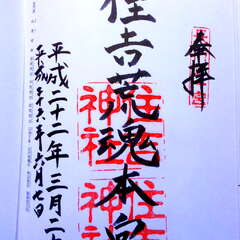 奉拝
住吉荒魂本宮
住吉
神社
住吉
神社
平成二十二年三月二十
六月七日